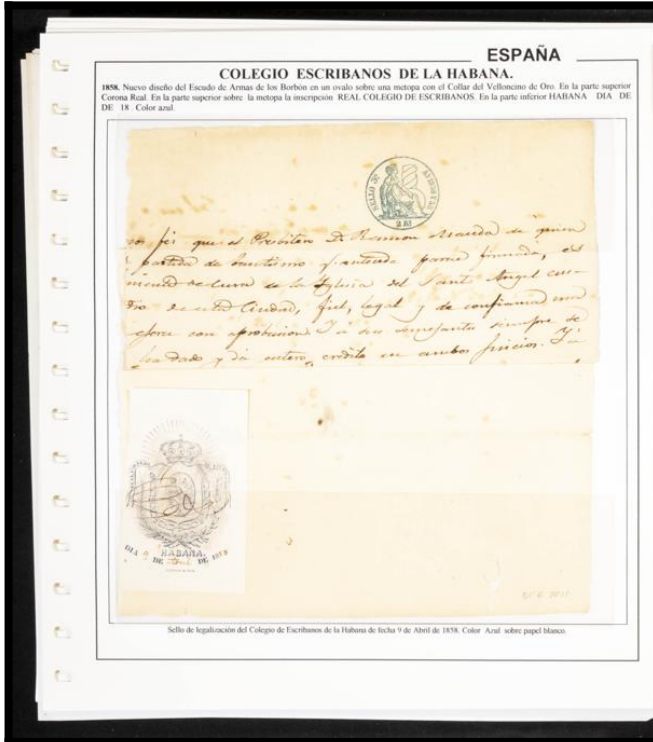 ESPAÑA
COLEGIO ESCRIBANOS DE LA HABANA.
1858. Nuevo diseño del Escudo de Armas de los Borbón en un ovalo sobre una metopa con el Collar del Velloncino de Oro. En la parte superior
Corona Real. En la parte superior sobre la metopa la inscripción REAL COLEGIO DE ESCRIBANOS. En la parte inferior HABANA DIA DE
DE 18 Color azul.
SELLO 3º
2 Rl
fé que el Presbitero D. Ramon de quien
partida de bautismo parece firmada, es
de Cura de la Iglesia del Santo Angel cus-
de esta Ciudad, fiel, legal y de confianza
ejerce con aprobacion. Y á sus semejantes siempre se
ha dado y dá entero credito en ambos juicios. Y
HABANA.
DIA 9 DE Abril DE 1858
Sello de legalización del Colegio de Escribanos de la Habana de fecha 9 de Abril de 1858. Color Azul sobre papel blanco.